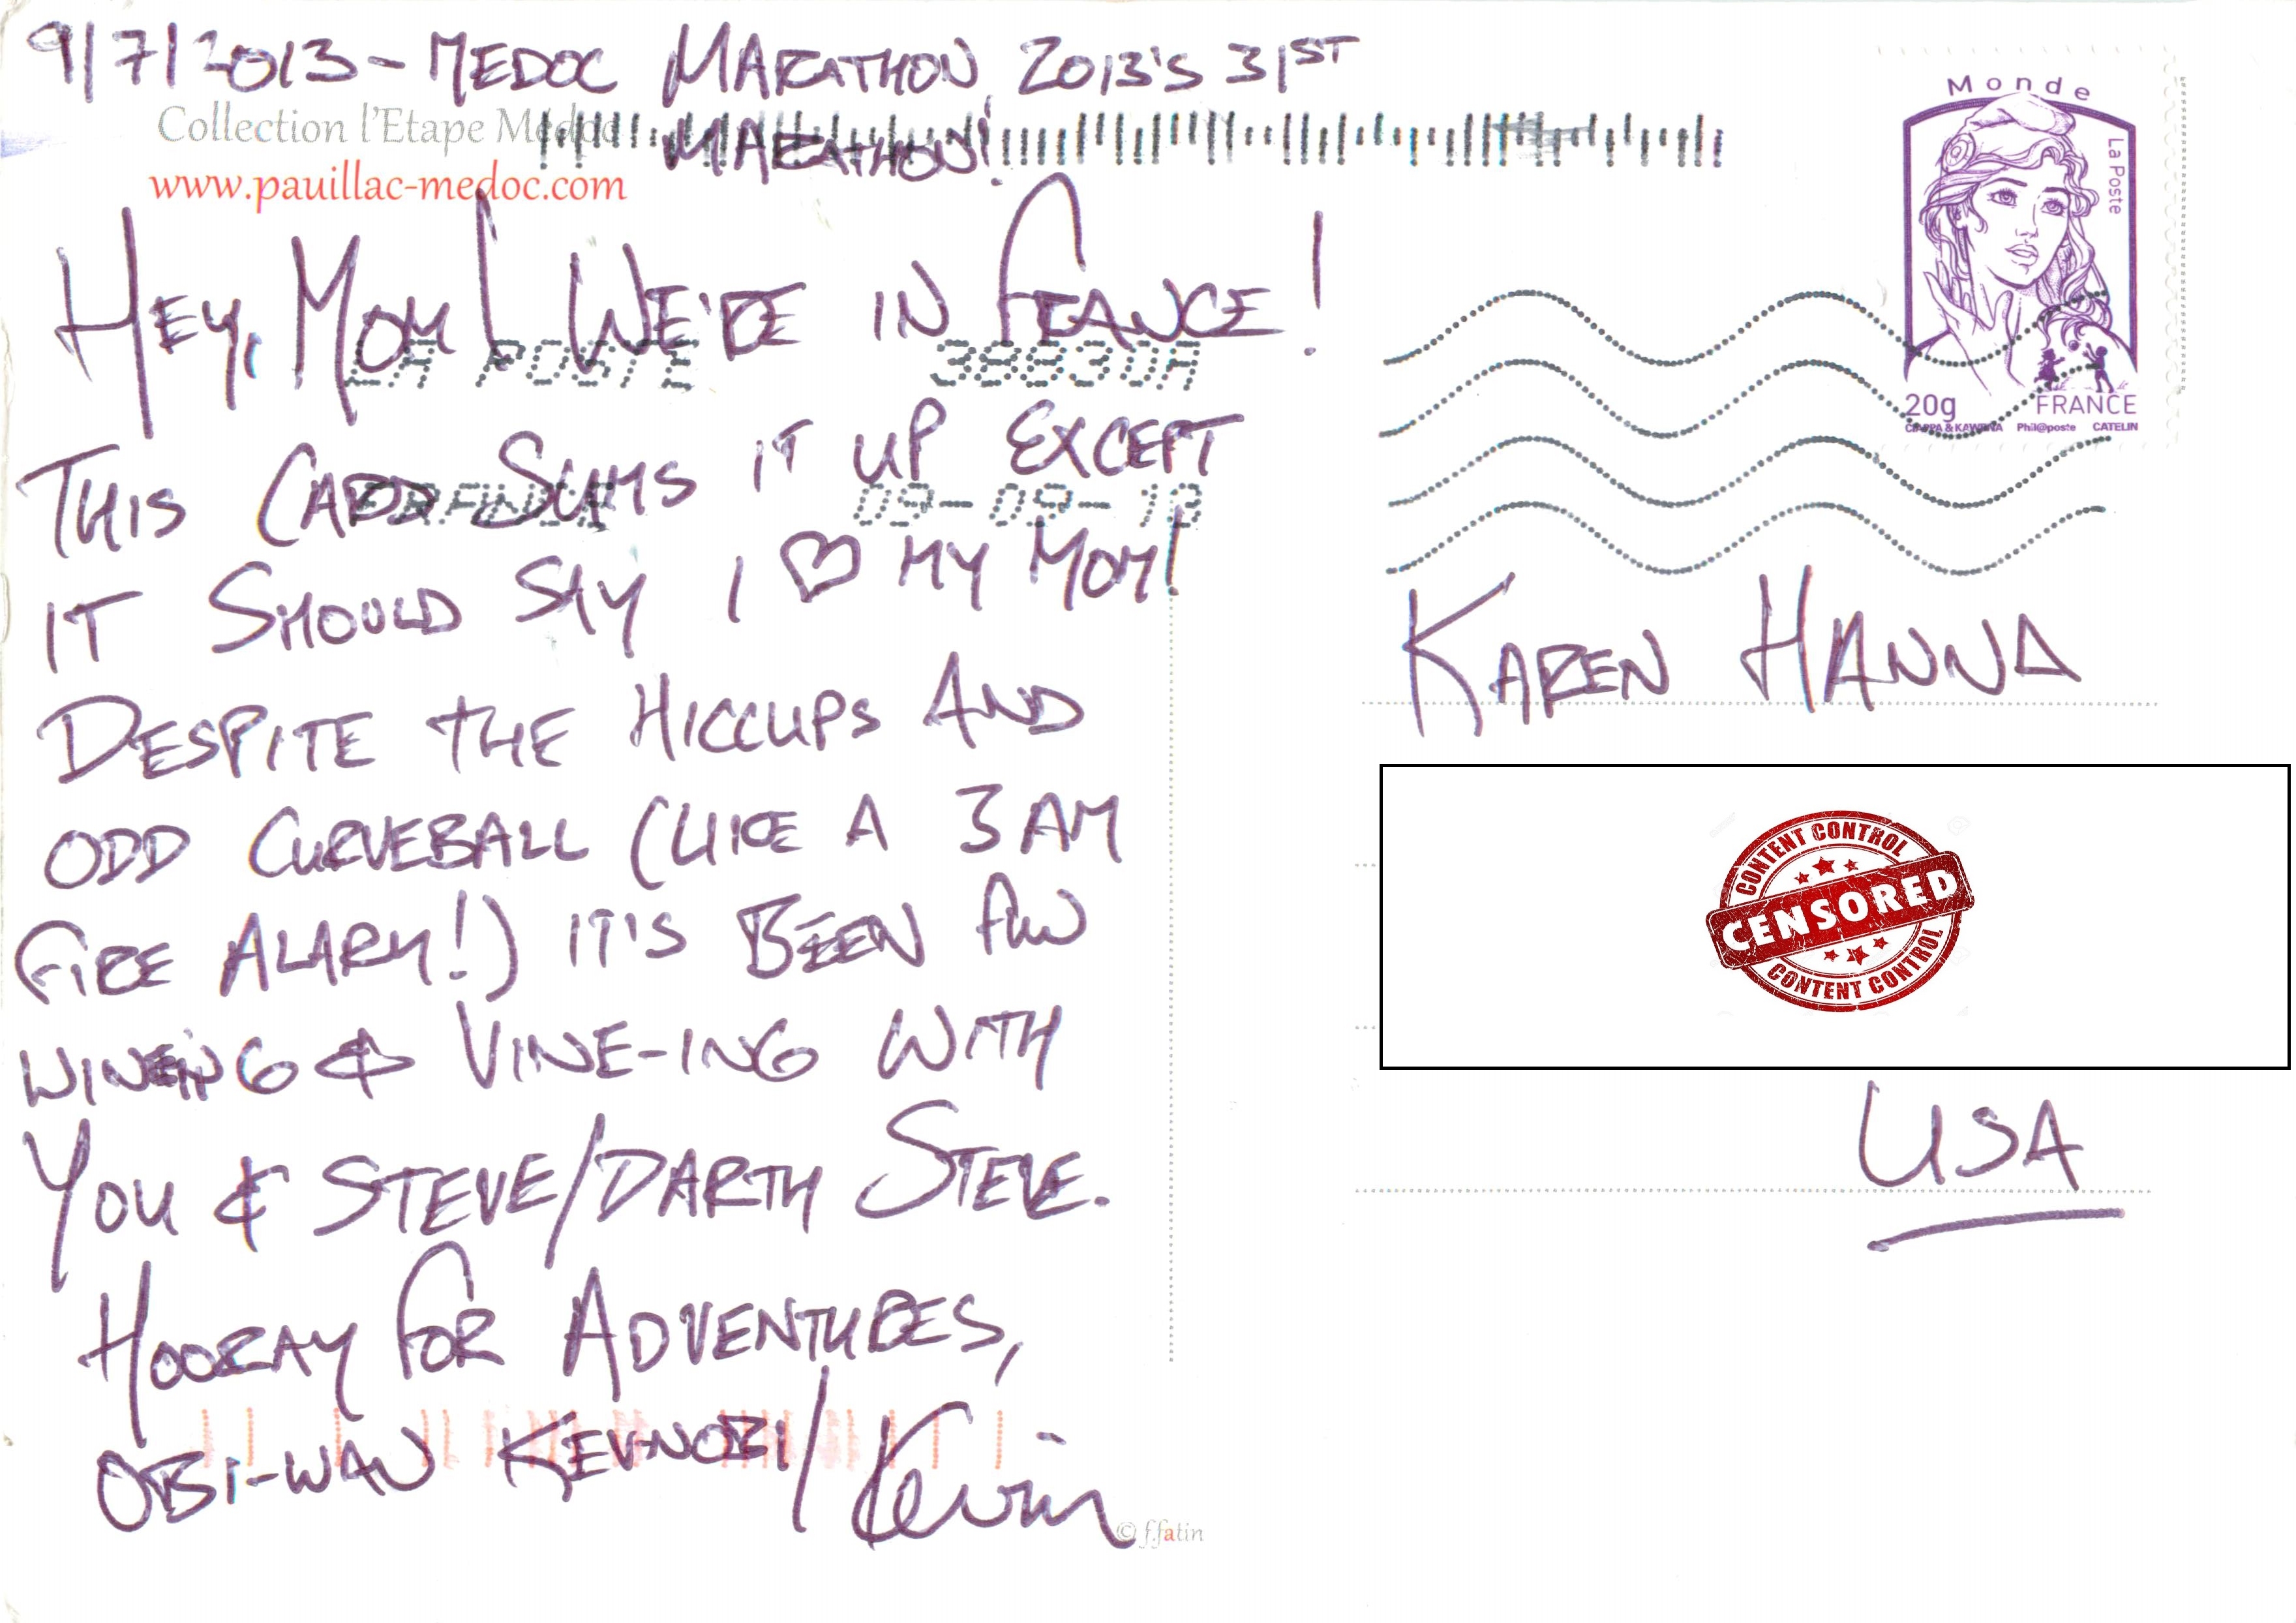 9/7/2013 - MEDOC MARATHON, 2013'S 31ST
MARATHON!
Collection l'Etape Médoc
www.pauillac-medoc.com
HEY, MOM! WE'RE IN FRANCE!
LA POSTE 38830A
THIS CARD SUMS IT UP EXCEPT
FRANCE 09-09-13
IT SHOULD SAY I ♡ MY MOM!
DESPITE THE HICCUPS AND
ODD CURVEBALL (LIKE A 3 AM
FIRE ALARM!) IT'S BEEN FUN
WINEING & VINE-ING WITH
YOU & STEVE/DARTH STEVE.
HOORAY FOR ADVENTURES,
OBI-WAN KEVNOBI/Kevin
© f.fatin
Monde
La Poste
20g FRANCE
CIAPPA & KAWENA Phil@poste CATELIN
KAREN HANNA
CONTENT CONTROL
CENSORED
CONTENT CONTROL
USA